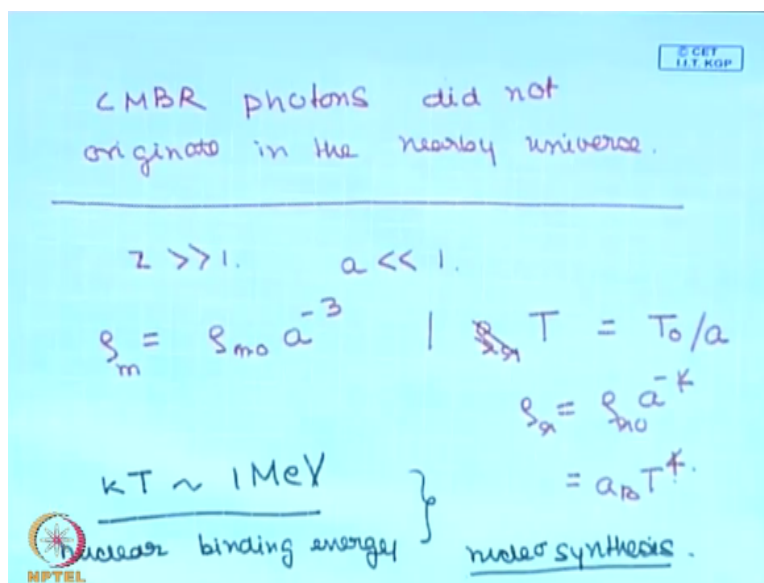 © CET
I.I.T. KGP
CMBR photons did not
originate in the nearby universe.
z >> 1. a << 1.
ρm = ρm0 a^-3 | T = T0/a
ρr = ρr0 a^-4
kT ~ 1 MeV } = aB T^4.
nuclear binding energy nucleosynthesis.
NPTEL